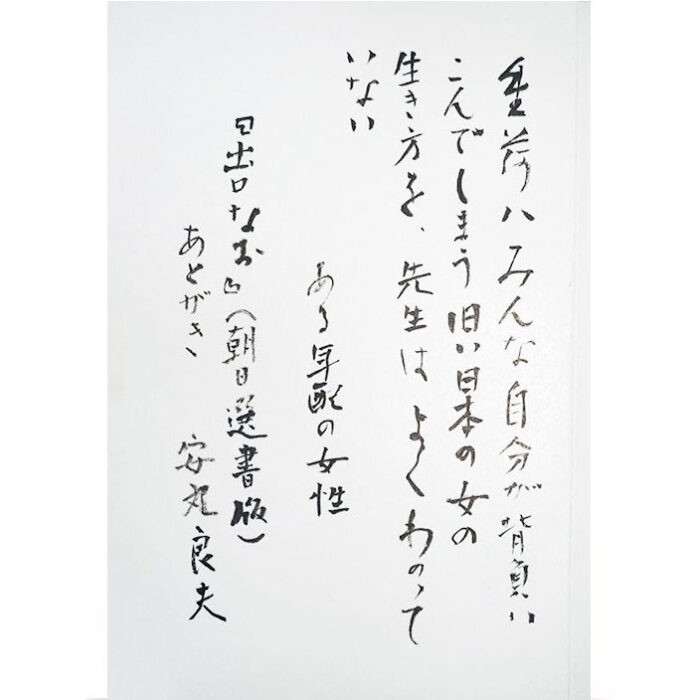 重荷ハみんな自分が背負い
こんでしまう旧い日本の女の
生き方を、先生はよくわかって
いない
ある年配の女性
『出口なお』(朝日選書版)
あとがき 安丸良夫